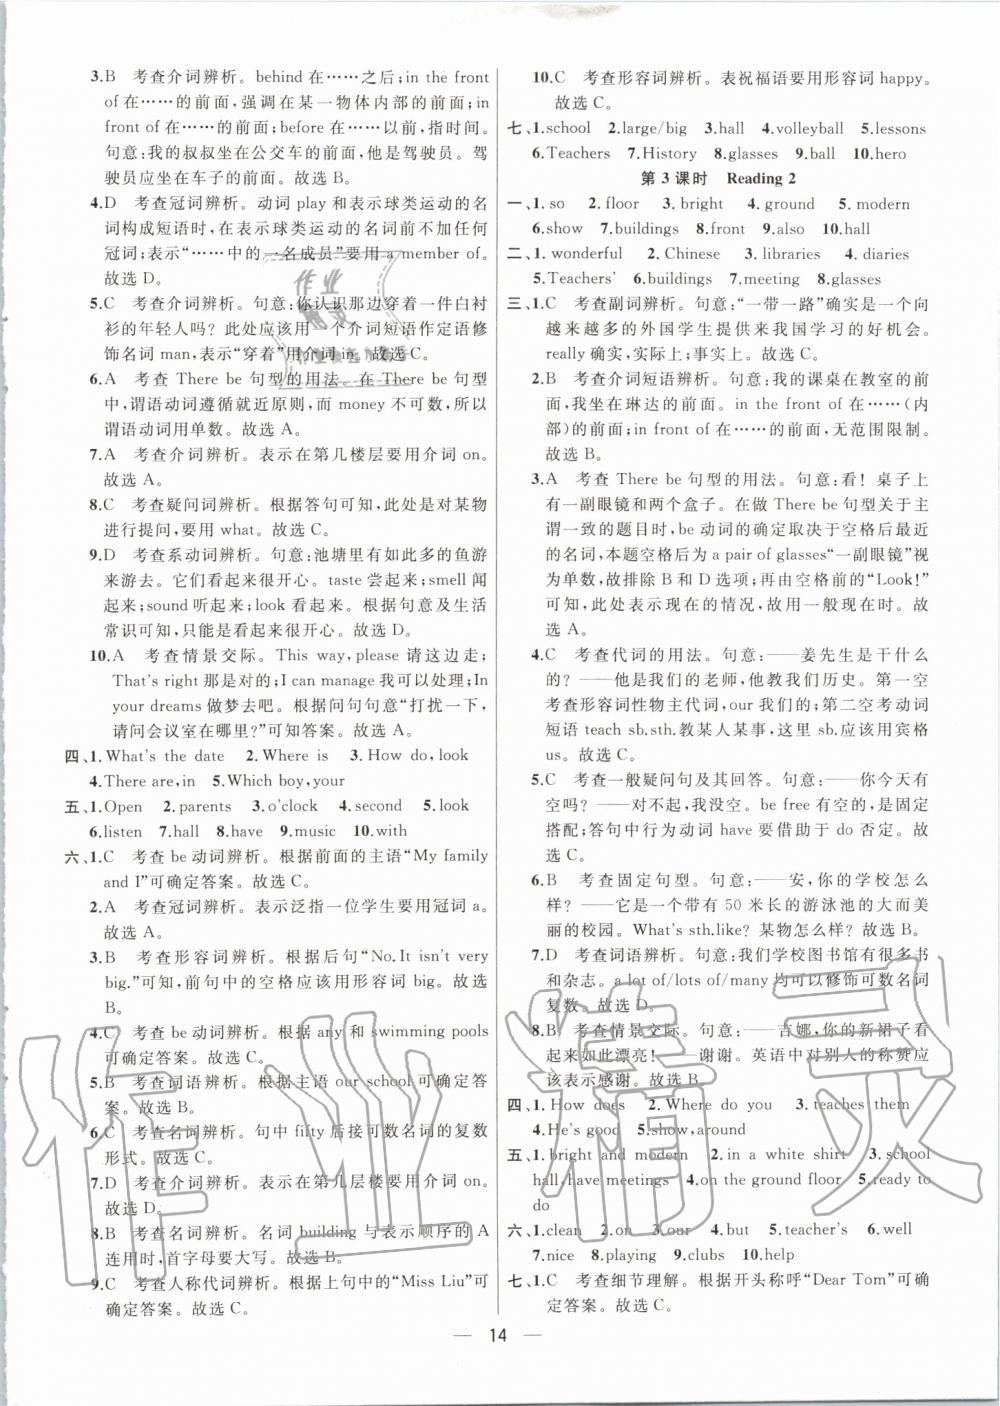 3.B 考查介词辨析。behind 在……之后;in the front
of 在……的前面,强调在某一物体内部的前面;in
front of 在……的前面;before 在……以前,指时间。
句意:我的叔叔坐在公交车的前面,他是驾驶员。驾
驶员应坐在车子的前面。故选 B。
4.D 考查冠词辨析。动词 play 和表示球类运动的名
词构成短语时,在表示球类运动的名词前不加任何
冠词;表示“……中的一名成员”要用 a member of。
故选 D。
5.C 考查介词辨析。句意:你认识那边穿着一件白衬
衫的年轻人吗?此处应该用一个介词短语作定语修
饰名词 man,表示“穿着”用介词 in。故选 C。
6.A 考查 There be 句型的用法。在 There be 句型
中,谓语动词遵循就近原则,而 money 不可数,所以
谓语动词用单数。故选 A。
7.A 考查介词辨析。表示在第几楼层要用介词 on。
故选 A。
8.C 考查疑问词辨析。根据答句可知,此处是对某物
进行提问,要用 what。故选 C。
9.D 考查系动词辨析。句意:池塘里有如此多的鱼游
来游去。它们看起来很开心。taste 尝起来;smell 闻
起来;sound 听起来;look 看起来。根据句意及生活
常识可知,只能是看起来很开心。故选 D。
10.A 考查情景交际。This way,please 请这边走;
That's right 那是对的;I can manage 我可以处理;In
your dreams 做梦去吧。根据问句句意“打扰一下,
请问会议室在哪里?”可知答案。故选 A。
四、1.What's the date 2.Where is 3.How do,look
4.There are,in 5.Which boy,your
五、1.Open 2.parents 3.o'clock 4.second 5.look
6.listen 7.hall 8.have 9.music 10.with
六、1.C 考查 be 动词辨析。根据前面的主语“My family
and I”可确定答案。故选 C。
2.A 考查冠词辨析。表示泛指一位学生要用冠词 a。
故选 A。
3.B 考查形容词辨析。根据后句“No.It isn't very
big.”可知,前句中的空格应该用形容词 big。故选
B。
4.C 考查 be 动词辨析。根据 any 和 swimming pools
可确定答案。故选 C。
5.B 考查词语辨析。根据主语 our school 可确定答
案。故选 B。
6.C 考查名词辨析。句中 fifty 后接可数名词的复数
形式。故选 C。
7.D 考查介词辨析。表示在第几层楼要用介词 on。
故选 D。
8.B 考查名词辨析。名词 building 与表示顺序的 A
连用时,首字母要大写。故选 B。
9.C 考查人称代词辨析。根据上句中的“Miss Liu”可
确定答案。故选 C。
10.C 考查形容词辨析。表祝福语要用形容词 happy。
故选 C。
七、1.school 2.large/big 3.hall 4.volleyball 5.lessons
6.Teachers 7.History 8.glasses 9.ball 10.hero
第 3 课时 Reading 2
一、1. so 2. floor 3. bright 4. ground 5. modern
6.show 7.buildings 8.front 9.also 10.hall
二、1. wonderful 2. Chinese 3. libraries 4. diaries
5.Teachers' 6.buildings 7.meeting 8.glasses
三、1.C 考查副词辨析。句意:“一带一路”确实是一个向
越来越多的外国学生提供来我国学习的好机会。
really 确实,实际上;事实上。故选 C。
2.B 考查介词短语辨析。句意:我的课桌在教室的前
面,我坐在琳达的前面。in the front of 在……(内
部)的前面;in front of 在……的前面,无范围限制。
故选 B。
3.A 考查 There be 句型的用法。句意:看!桌子上
有一副眼镜和两个盒子。在做 There be 句型关于主
谓一致的题目时,be 动词的确定取决于空格后最近
的名词,本题空格后为 a pair of glasses“一副眼镜”视
为单数,故排除 B 和 D 选项;再由空格前的“Look!”
可知,此处表示现在的情况,故用一般现在时。故
选 A。
4.C 考查代词的用法。句意:——姜先生是干什么
的?——他是我们的老师,他教我们历史。第一空
考查形容词性物主代词,our 我们的;第二空考动词
短语 teach sb.sth.教某人某事,这里 sb.应该用宾格
us。故选 C。
5.C 考查一般疑问句及其回答。句意:——你今天有
空吗?——对不起,我没空。be free 有空的,是固定
搭配;答句中行为动词 have 要借助于 do 否定。故
选 C。
6.B 考查固定句型。句意:——安,你的学校怎么
样?——它是一个带有 50 米长的游泳池的大而美
丽的校园。What's sth.like?某物怎么样?故选 B。
7.D 考查词语辨析。句意:我们学校图书馆有很多书
和杂志。a lot of/lots of/many 均可以修饰可数名词
复数。故选 D。
8.B 考查情景交际。句意:——吉娜,你的新裙子看
起来如此漂亮!——谢谢。英语中对别人的称赞应
该表示感谢。故选 B。
四、1.How does 2.Where do you 3.teaches them
4.He's good 5.show,around
五、1.bright and modern 2.in a white shirt 3.school
hall,have meetings 4.on the ground floor 5.ready to
do
六、1.clean 2.on 3.our 4.but 5.teacher's 6.well
7.nice 8.playing 9.clubs 10.happy
七、1.C 考查细节理解。根据开头称呼“Dear Tom”可确
定答案。故选 C。
— 14 —
作业精灵